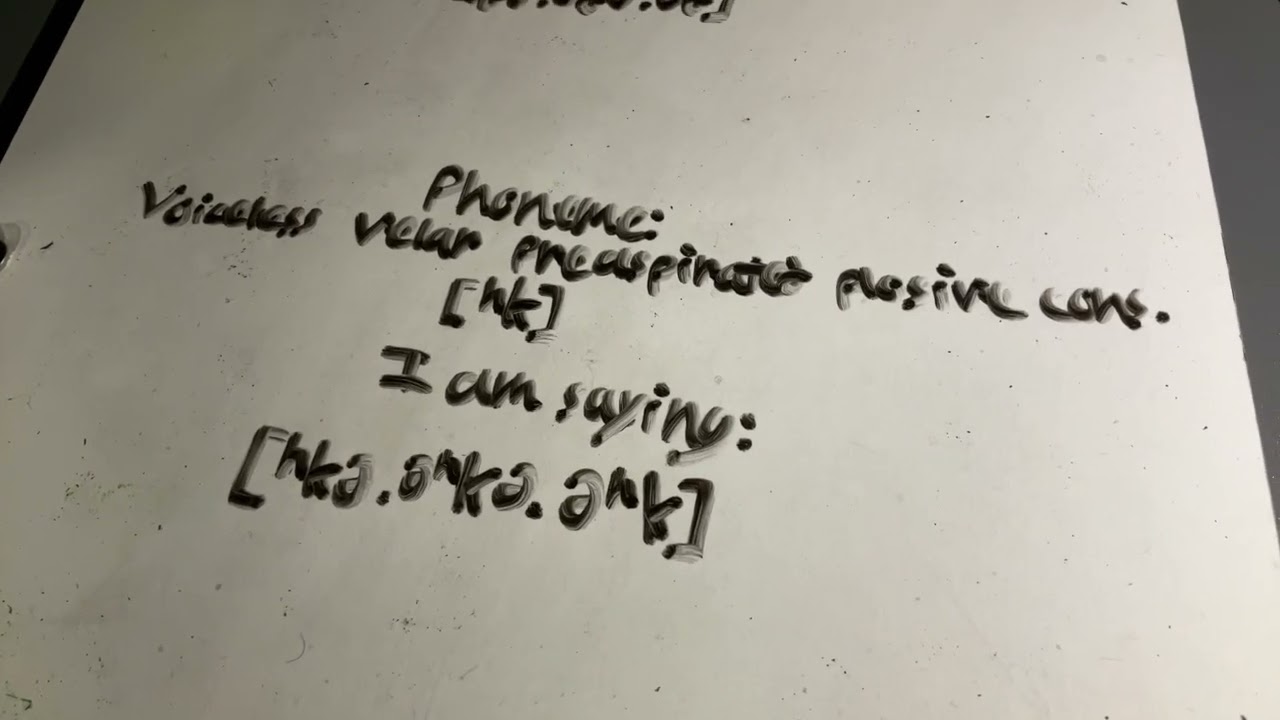 Phoneme:
Voiceless velar preaspirated plosive cons.
[ʰk]
I am saying:
[ʰkə.əʰkə.əʰk]